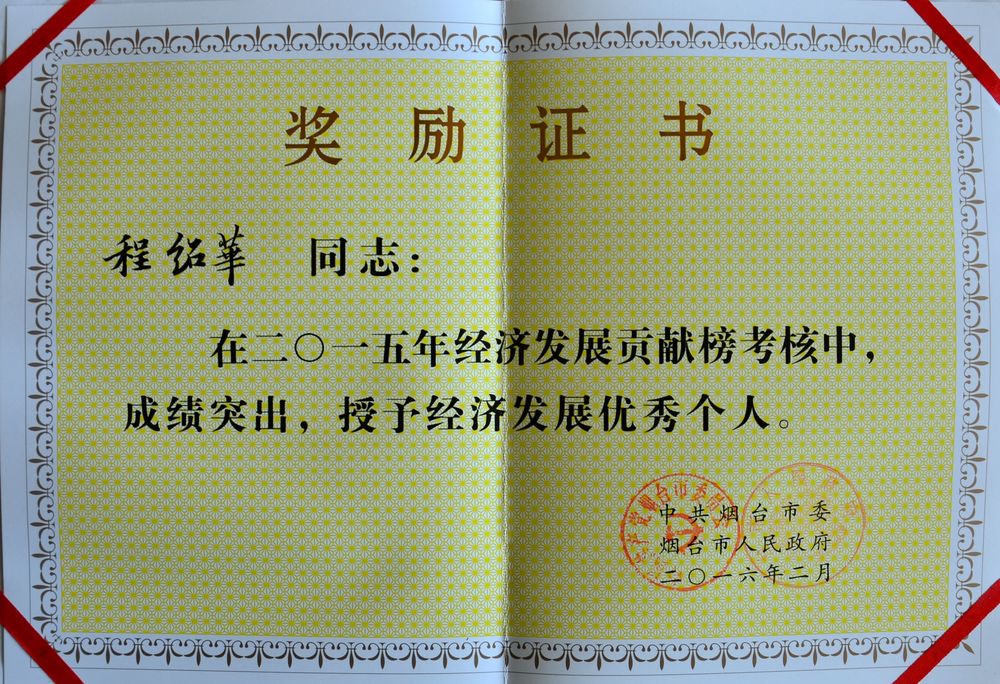 奖励证书
程绍華 同志：
在二〇一五年经济发展贡献榜考核中，
成绩突出，授予经济发展优秀个人。
中共烟台市委
烟台市人民政府
二〇一六年二月